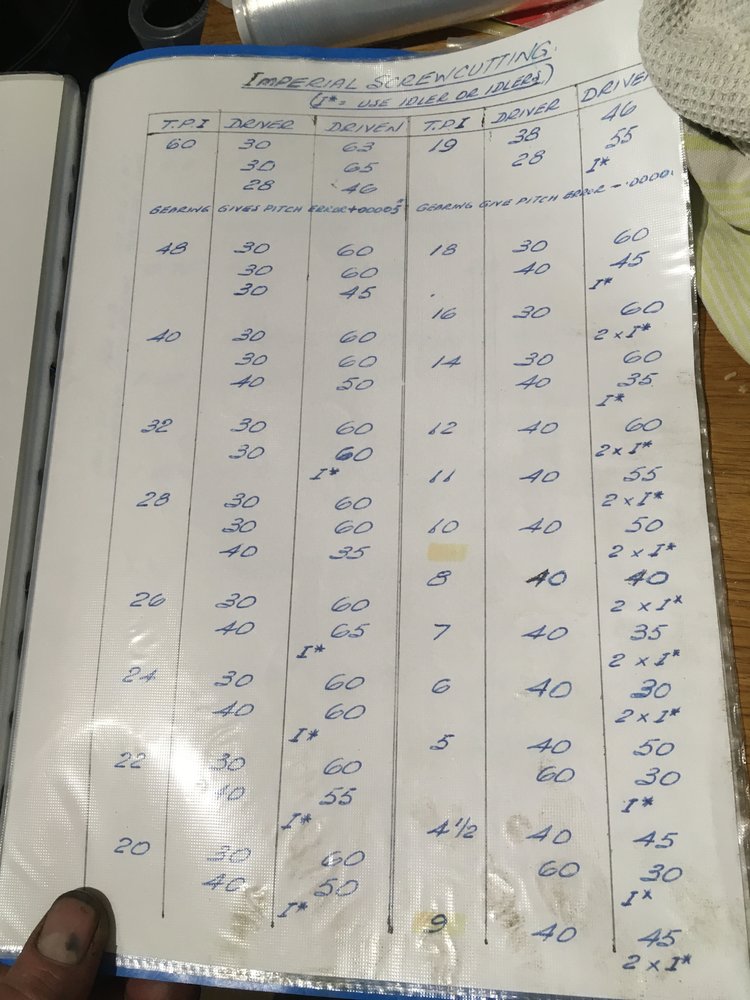 IMPERIAL SCREWCUTTING.
(I* = USE IDLER OR IDLERS)
T.P.I DRIVER DRIVEN
60 30 63
30 65
28 46
GEARING GIVES PITCH ERROR +.00005"
48 30 60
30 60
30 45
40 30 60
30 60
40 50
32 30 60
30 60
I*
28 30 60
30 60
40 35
26 30 60
40 65
I*
24 30 60
40 60
I*
22 30 60
40 55
I*
20 30 60
40 50
I*
T.P.I DRIVER DRIVEN
19 38 46
28 55
I*
GEARING GIVE PITCH ERROR -.0000
18 30 60
40 45
I*
16 30 60
2 x I*
14 30 60
40 35
I*
12 40 60
2 x I*
11 40 55
2 x I*
10 40 50
2 x I*
8 40 40
2 x I*
7 40 35
2 x I*
6 40 30
2 x I*
5 40 50
60 30
I*
4 1/2 40 45
60 30
I*
9 40 45
2 x I*